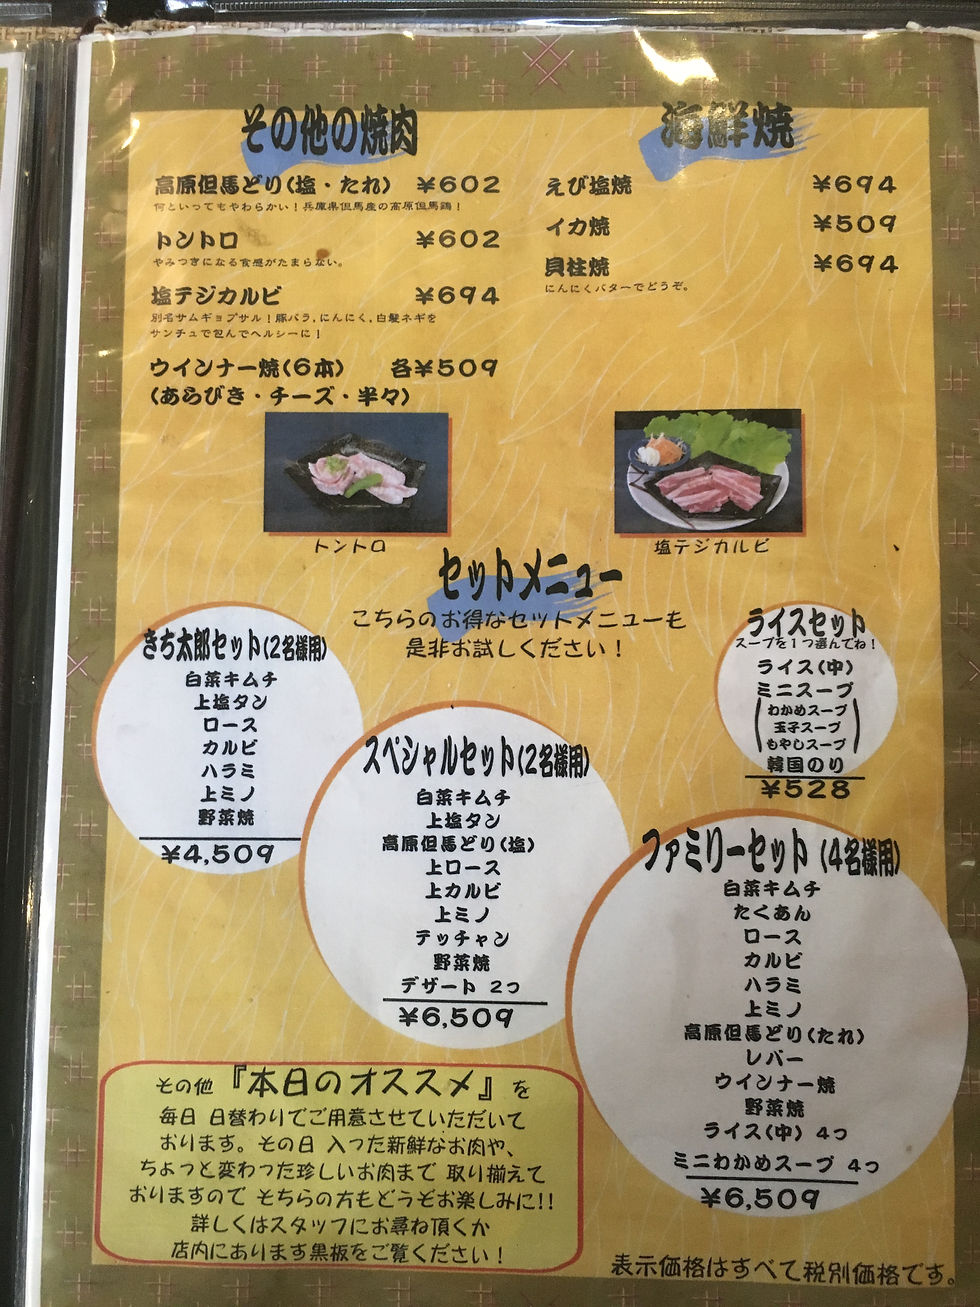 その他の焼肉
高原但馬どり(塩・たれ) ¥602
何といってもやわらかい!兵庫県但馬産の高原但馬鶏!
トントロ ¥602
やみつきになる食感がたまらない。
塩テジカルビ ¥694
別名サムギョプサル!豚バラ,にんにく,白髪ネギを
サンチュで包んでヘルシーに!
ウインナー焼(6本) 各¥509
(あらびき・チーズ・半々)
海鮮焼
えび塩焼 ¥694
イカ焼 ¥509
貝柱焼 ¥694
にんにくバターでどうぞ。
トントロ
塩テジカルビ
セットメニュー
こちらのお得なセットメニューも
是非お試しください!
きち太郎セット(2名様用)
白菜キムチ
上塩タン
ロース
カルビ
ハラミ
上ミノ
野菜焼
¥4,509
スペシャルセット(2名様用)
白菜キムチ
上塩タン
高原但馬どり(塩)
上ロース
上カルビ
上ミノ
テッチャン
野菜焼
デザート 2つ
¥6,509
ライスセット
スープを1つ選んでね!
ライス(中)
ミニスープ
(わかめスープ
玉子スープ
もやしスープ)
韓国のり
¥528
ファミリーセット(4名様用)
白菜キムチ
たくあん
ロース
カルビ
ハラミ
上ミノ
高原但馬どり(たれ)
レバー
ウインナー焼
野菜焼
ライス(中) 4つ
ミニわかめスープ 4つ
¥6,509
その他『本日のオススメ』を
毎日 日替わりでご用意させていただいて
おります。その日 入った新鮮なお肉や、
ちょっと変わった珍しいお肉まで 取り揃えて
おりますので そちらの方もどうぞお楽しみに!!
詳しくはスタッフにお尋ね頂くか
店内にあります黒板をご覧ください!
表示価格はすべて税別価格です。